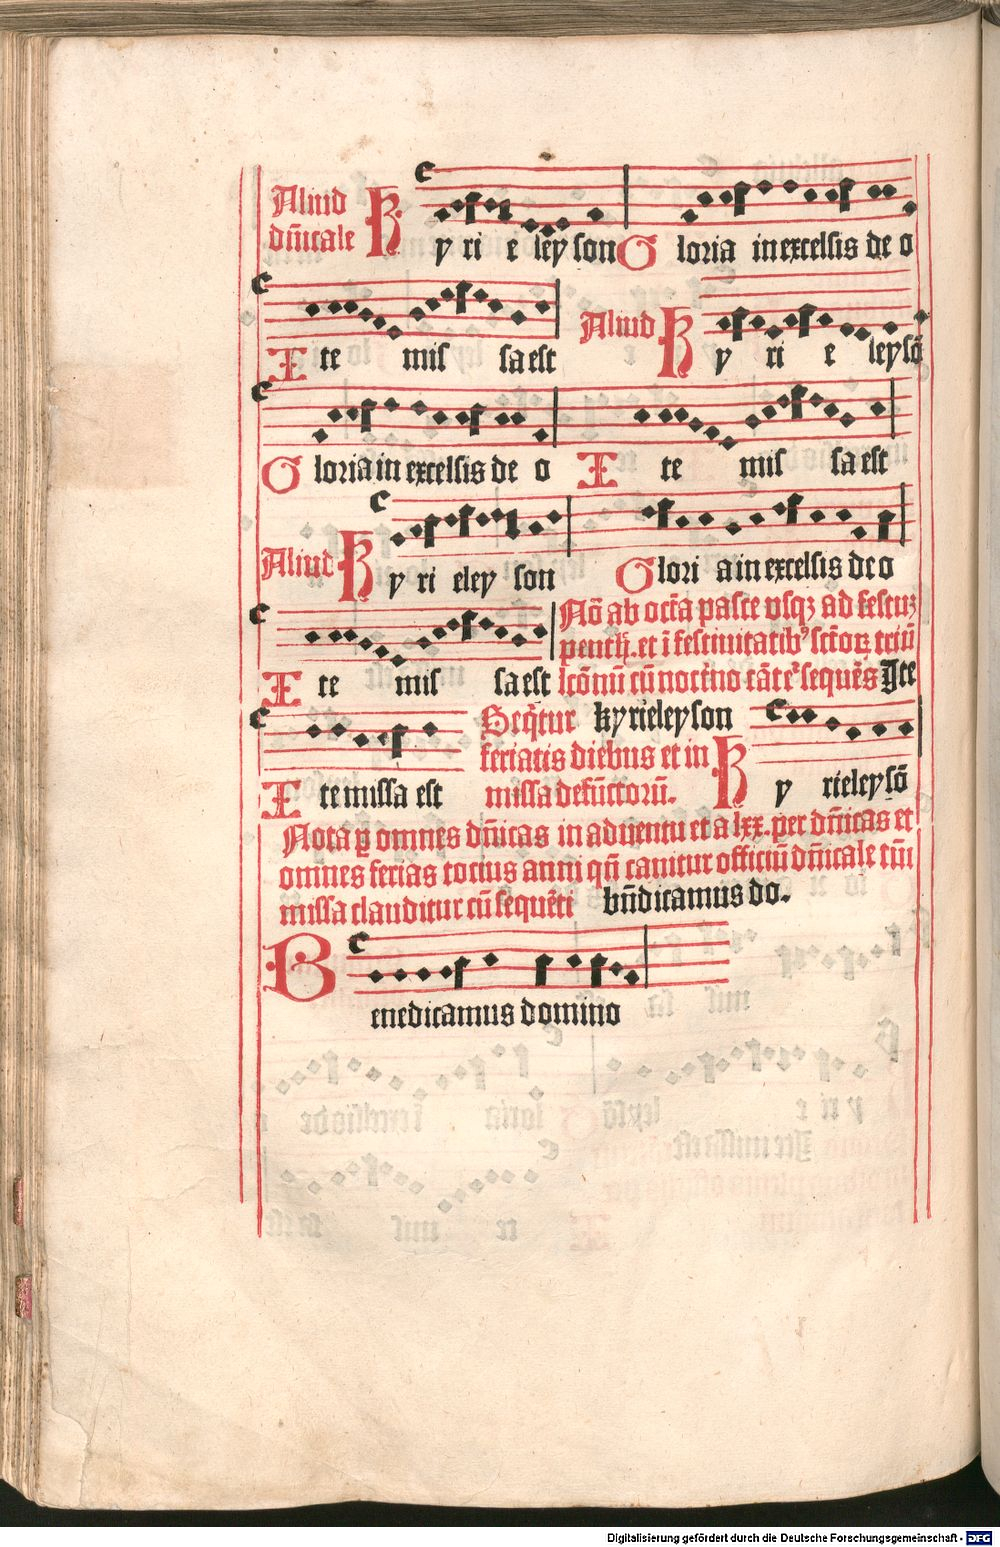 Aliud
dñicale Ky ri e ley son Gloria in excelsis de o
Ite mis sa est Aliud Ky ri e leysõ
Gloria in excelsis de o Ite mis sa est
Aliud Ky ri eley son Glori a in excelsis deo
Nõ ab octa pasce vsqꝫ ad festuꝫ
et ĩ festiuitatibꝰ sctoꝝ triũ
Ite mis sa est lcõnũ cũ noctno Ite
Seqtur kyrieleyson
ferialis diebus et in
Ite missa est missa defũctorũ. Ky rieleysõ
Nota ꝑ omnes dñicas in aduentu et a lxx. per dñicas et
omnes ferias tocius anni qñ canitur officiũ dñicale tũi
missa clauditur cũ sequeti bñdicamus do.
Benedicamus domino
Digitalisierung gefördert durch die Deutsche Forschungsgemeinschaft - DFG